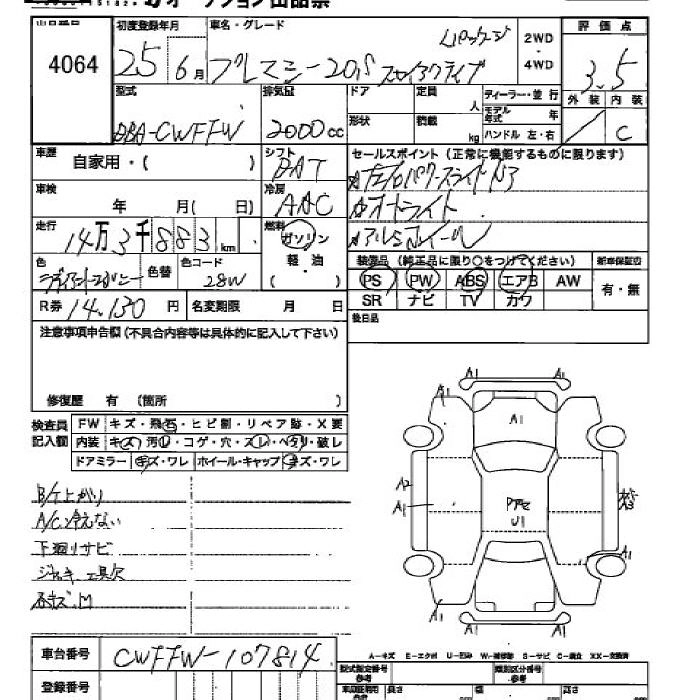 オークション出品票
出品番号 初度登録年月 車名・グレード 評価点
4064 25 6月 プレマシー 20S スカイアクティブ Lパッケージ 2WD・4WD 3.5
外装 内装
C
型式 排気量 ドア 定員 人 ディーラー・並行
DBA-CWFFW 2000cc 形状 積載 kg モデル年式 年
ハンドル 左・右
車歴 自家用・( ) シフト DAT セールスポイント (正常に機能するものに限ります)
両パワースライドドア
車検 年 月( 日) 冷房 AAC オートライト
走行 14万3千883km 燃料 ガソリン・軽・油 ( ) アルミホイール
装備品 (純正品に限り○をつけてください) 新車保証書
色 色替 色コード 28W PS PW ABS エアB AW 有・無
SR ナビ TV カワ
R券 14,130円 名変期限 月 日
後日品
注意事項申告欄(不具合内容等は具体的に記入して下さい)
修復歴 有 (箇所 )
検査員記入欄 FW キズ・飛石・ヒビ割・リペア跡・X要
内装 キズ・汚レ・コゲ・穴・スレ・ヘタリ・破レ
ドアミラー キズ・ワレ ホイール・キャップ キズ・ワレ
A1 A1
A1
B/T上がり
A2
A1
U1
A/C冷えない
下廻りサビ
A1
ジャッキ、工具欠
A1 A1
車台番号 CWFFW-107814
A-キズ E-エクボ U-凹み W-補修跡 S-サビ C-腐食 XX-交換済
型式指定番号 参考 類別区分番号 参考
登録番号 長さ 幅 高さ